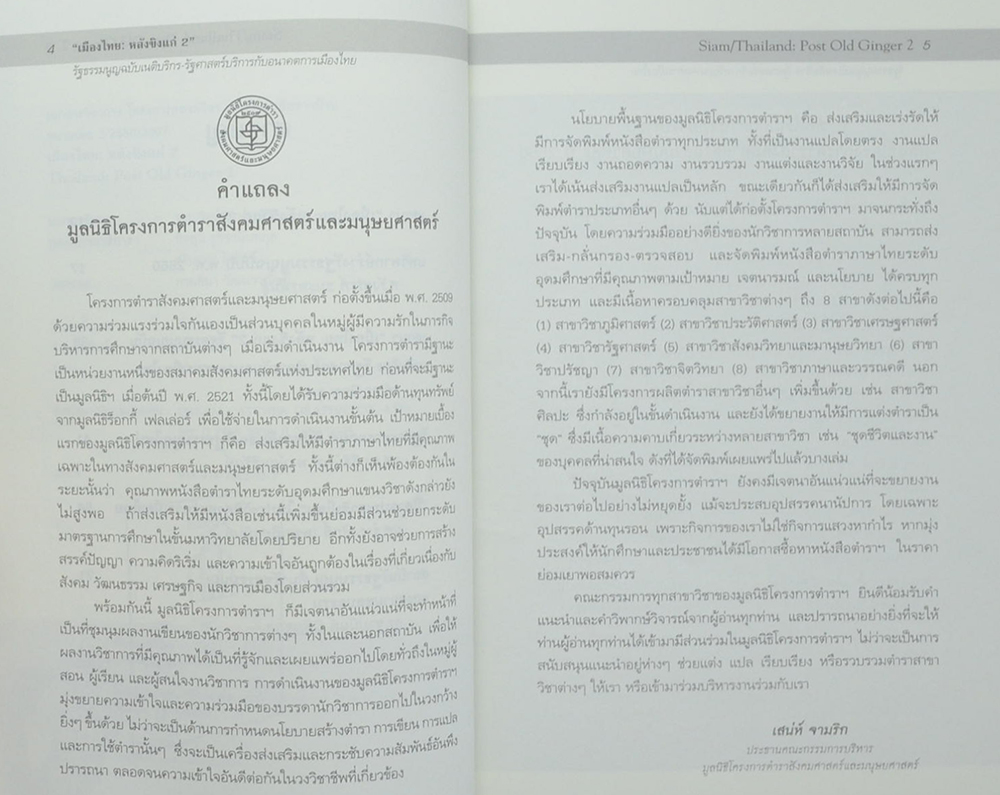 4 “เมืองไทย: หลังขิงแก่ 2”
รัฐธรรมนูญฉบับเนติบริกร-รัฐศาสตร์บริการกับอนาคตการเมืองไทย
มูลนิธิโครงการตำรา
๒๕๐๙
สังคมศาสตร์และมนุษยศาสตร์
คำแถลง
มูลนิธิโครงการตำราสังคมศาสตร์และมนุษยศาสตร์
โครงการตำราสังคมศาสตร์และมนุษยศาสตร์ ก่อตั้งขึ้นเมื่อ พ.ศ. 2509
ด้วยความร่วมแรงร่วมใจกันเองเป็นส่วนบุคคลในหมู่ผู้มีความรักในภารกิจ
บริหารการศึกษาจากสถาบันต่างๆ เมื่อเริ่มดำเนินงาน โครงการตำรามีฐานะ
เป็นหน่วยงานหนึ่งของสมาคมสังคมศาสตร์แห่งประเทศไทย ก่อนที่จะมีฐานะ
เป็นมูลนิธิฯ เมื่อต้นปี พ.ศ. 2521 ทั้งนี้โดยได้รับความร่วมมือด้านทุนทรัพย์
จากมูลนิธิร็อกกี้ เฟลเล่อร์ เพื่อใช้จ่ายในการดำเนินงานขั้นต้น เป้าหมายเบื้อง
แรกของมูลนิธิโครงการตำราฯ ก็คือ ส่งเสริมให้มีตำราภาษาไทยที่มีคุณภาพ
เฉพาะในทางสังคมศาสตร์และมนุษยศาสตร์ ทั้งนี้ต่างก็เห็นพ้องต้องกันใน
ระยะนั้นว่า คุณภาพหนังสือตำราไทยระดับอุดมศึกษาแขนงวิชาดังกล่าวยัง
ไม่สูงพอ ถ้าส่งเสริมให้มีหนังสือเช่นนี้เพิ่มขึ้นย่อมมีส่วนช่วยยกระดับ
มาตรฐานการศึกษาในขั้นมหาวิทยาลัยโดยปริยาย อีกทั้งยังอาจช่วยการสร้าง
สรรค์ปัญญา ความคิดริเริ่ม และความเข้าใจอันถูกต้องในเรื่องที่เกี่ยวเนื่องกับ
สังคม วัฒนธรรม เศรษฐกิจ และการเมืองโดยส่วนรวม
พร้อมกันนี้ มูลนิธิโครงการตำราฯ ก็มีเจตนาอันแน่วแน่ที่จะทำหน้าที่
เป็นที่ชุมนุมผลงานเขียนของนักวิชาการต่างๆ ทั้งในและนอกสถาบัน เพื่อให้
ผลงานวิชาการที่มีคุณภาพได้เป็นที่รู้จักและเผยแพร่ออกไปโดยทั่วถึงในหมู่ผู้
สอน ผู้เรียน และผู้สนใจงานวิชาการ การดำเนินงานของมูลนิธิโครงการตำราฯ
มุ่งขยายความเข้าใจและความร่วมมือของบรรดานักวิชาการออกไปในวงกว้าง
ยิ่งๆ ขึ้นด้วย ไม่ว่าจะเป็นด้านการกำหนดนโยบายสร้างตำรา การเขียน การแปล
และการใช้ตำรานั้นๆ ซึ่งจะเป็นเครื่องส่งเสริมและกระชับความสัมพันธ์อันพึง
ปรารถนา ตลอดจนความเข้าใจอันดีต่อกันในวงวิชาชีพที่เกี่ยวข้อง
Siam/Thailand: Post Old Ginger 2 5
นโยบายพื้นฐานของมูลนิธิโครงการตำราฯ คือ ส่งเสริมและเร่งรัดให้
มีการจัดพิมพ์หนังสือตำราทุกประเภท ทั้งที่เป็นงานแปลโดยตรง งานแปล
เรียบเรียง งานถอดความ งานรวบรวม งานแต่งและงานวิจัย ในช่วงแรกๆ
เราได้เน้นส่งเสริมงานแปลเป็นหลัก ขณะเดียวกันก็ได้ส่งเสริมให้มีการจัด
พิมพ์ตำราประเภทอื่นๆ ด้วย นับแต่ได้ก่อตั้งโครงการตำราฯ มาจนกระทั่งถึง
ปัจจุบัน โดยความร่วมมืออย่างดียิ่งของนักวิชาการหลายสถาบัน สามารถส่ง
เสริม-กลั่นกรอง-ตรวจสอบ และจัดพิมพ์หนังสือตำราภาษาไทยระดับ
อุดมศึกษาที่มีคุณภาพตามเป้าหมาย เจตนารมณ์ และนโยบาย ได้ครบทุก
ประเภท และมีเนื้อหาครอบคลุมสาขาวิชาต่างๆ ถึง 8 สาขาดังต่อไปนี้คือ
(1) สาขาวิชาภูมิศาสตร์ (2) สาขาวิชาประวัติศาสตร์ (3) สาขาวิชาเศรษฐศาสตร์
(4) สาขาวิชารัฐศาสตร์ (5) สาขาวิชาสังคมวิทยาและมานุษยวิทยา (6) สาขา
วิชาปรัชญา (7) สาขาวิชาจิตวิทยา (8) สาขาวิชาภาษาและวรรณคดี นอก
จากนี้เรายังมีโครงการผลิตตำราสาขาวิชาอื่นๆ เพิ่มขึ้นด้วย เช่น สาขาวิชา
ศิลปะ ซึ่งกำลังอยู่ในขั้นดำเนินงาน และยังได้ขยายงานให้มีการแต่งตำราเป็น
“ชุด” ซึ่งมีเนื้อความคาบเกี่ยวระหว่างหลายสาขาวิชา เช่น “ชุดชีวิตและงาน”
ของบุคคลที่น่าสนใจ ดังที่ได้จัดพิมพ์เผยแพร่ไปแล้วบางเล่ม
ปัจจุบันมูลนิธิโครงการตำราฯ ยังคงมีเจตนาอันแน่วแน่ที่จะขยายงาน
ของเราต่อไปอย่างไม่หยุดยั้ง แม้จะประสบอุปสรรคนานัปการ โดยเฉพาะ
อุปสรรคด้านทุนรอน เพราะกิจการของเราไม่ใช่กิจการแสวงหากำไร หากมุ่ง
ประสงค์ให้นักศึกษาและประชาชนได้มีโอกาสซื้อหาหนังสือตำราฯ ในราคา
ย่อมเยาพอสมควร
คณะกรรมการทุกสาขาวิชาของมูลนิธิโครงการตำราฯ ยินดีน้อมรับคำ
แนะนำและคำวิพากษ์วิจารณ์จากผู้อ่านทุกท่าน และปรารถนาอย่างยิ่งที่จะให้
ท่านผู้อ่านทุกท่านได้เข้ามามีส่วนร่วมในมูลนิธิโครงการตำราฯ ไม่ว่าจะเป็นการ
สนับสนุนแนะนำอยู่ห่างๆ ช่วยแต่ง แปล เรียบเรียง หรือรวบรวมตำราสาขา
วิชาต่างๆ ให้เรา หรือเข้ามาร่วมบริหารงานร่วมกับเรา
เสน่ห์ จามริก
ประธานคณะกรรมการบริหาร
มูลนิธิโครงการตำราสังคมศาสตร์และมนุษยศาสตร์